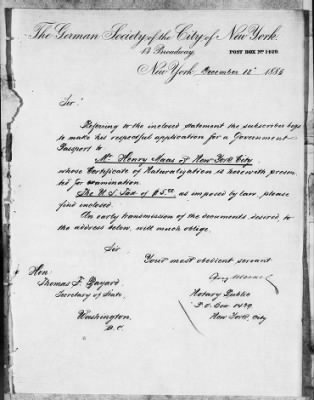 The German Society of the City of New York.
13 Broadway.
POST BOX Nº 1429.
New York, December 12th 1885
Sir
Referring to the inclosed statement the subscriber begs
to make his respectful application for a Government
Passport to
Mr Henry Maas of New York City
whose Certificate of Naturalization is herewith presen
ted for examination.
The U.S. Tax of $5.00 as imposed by law, please
find inclosed.
An early transmission of the documents desired, to
the address below, will much oblige.
Sir
Your most obedient servant
Hon.
Thomas F. Bayard
Secretary of State.
Washington
D.C.
Notary Public
P.O. Box 1429
New York City